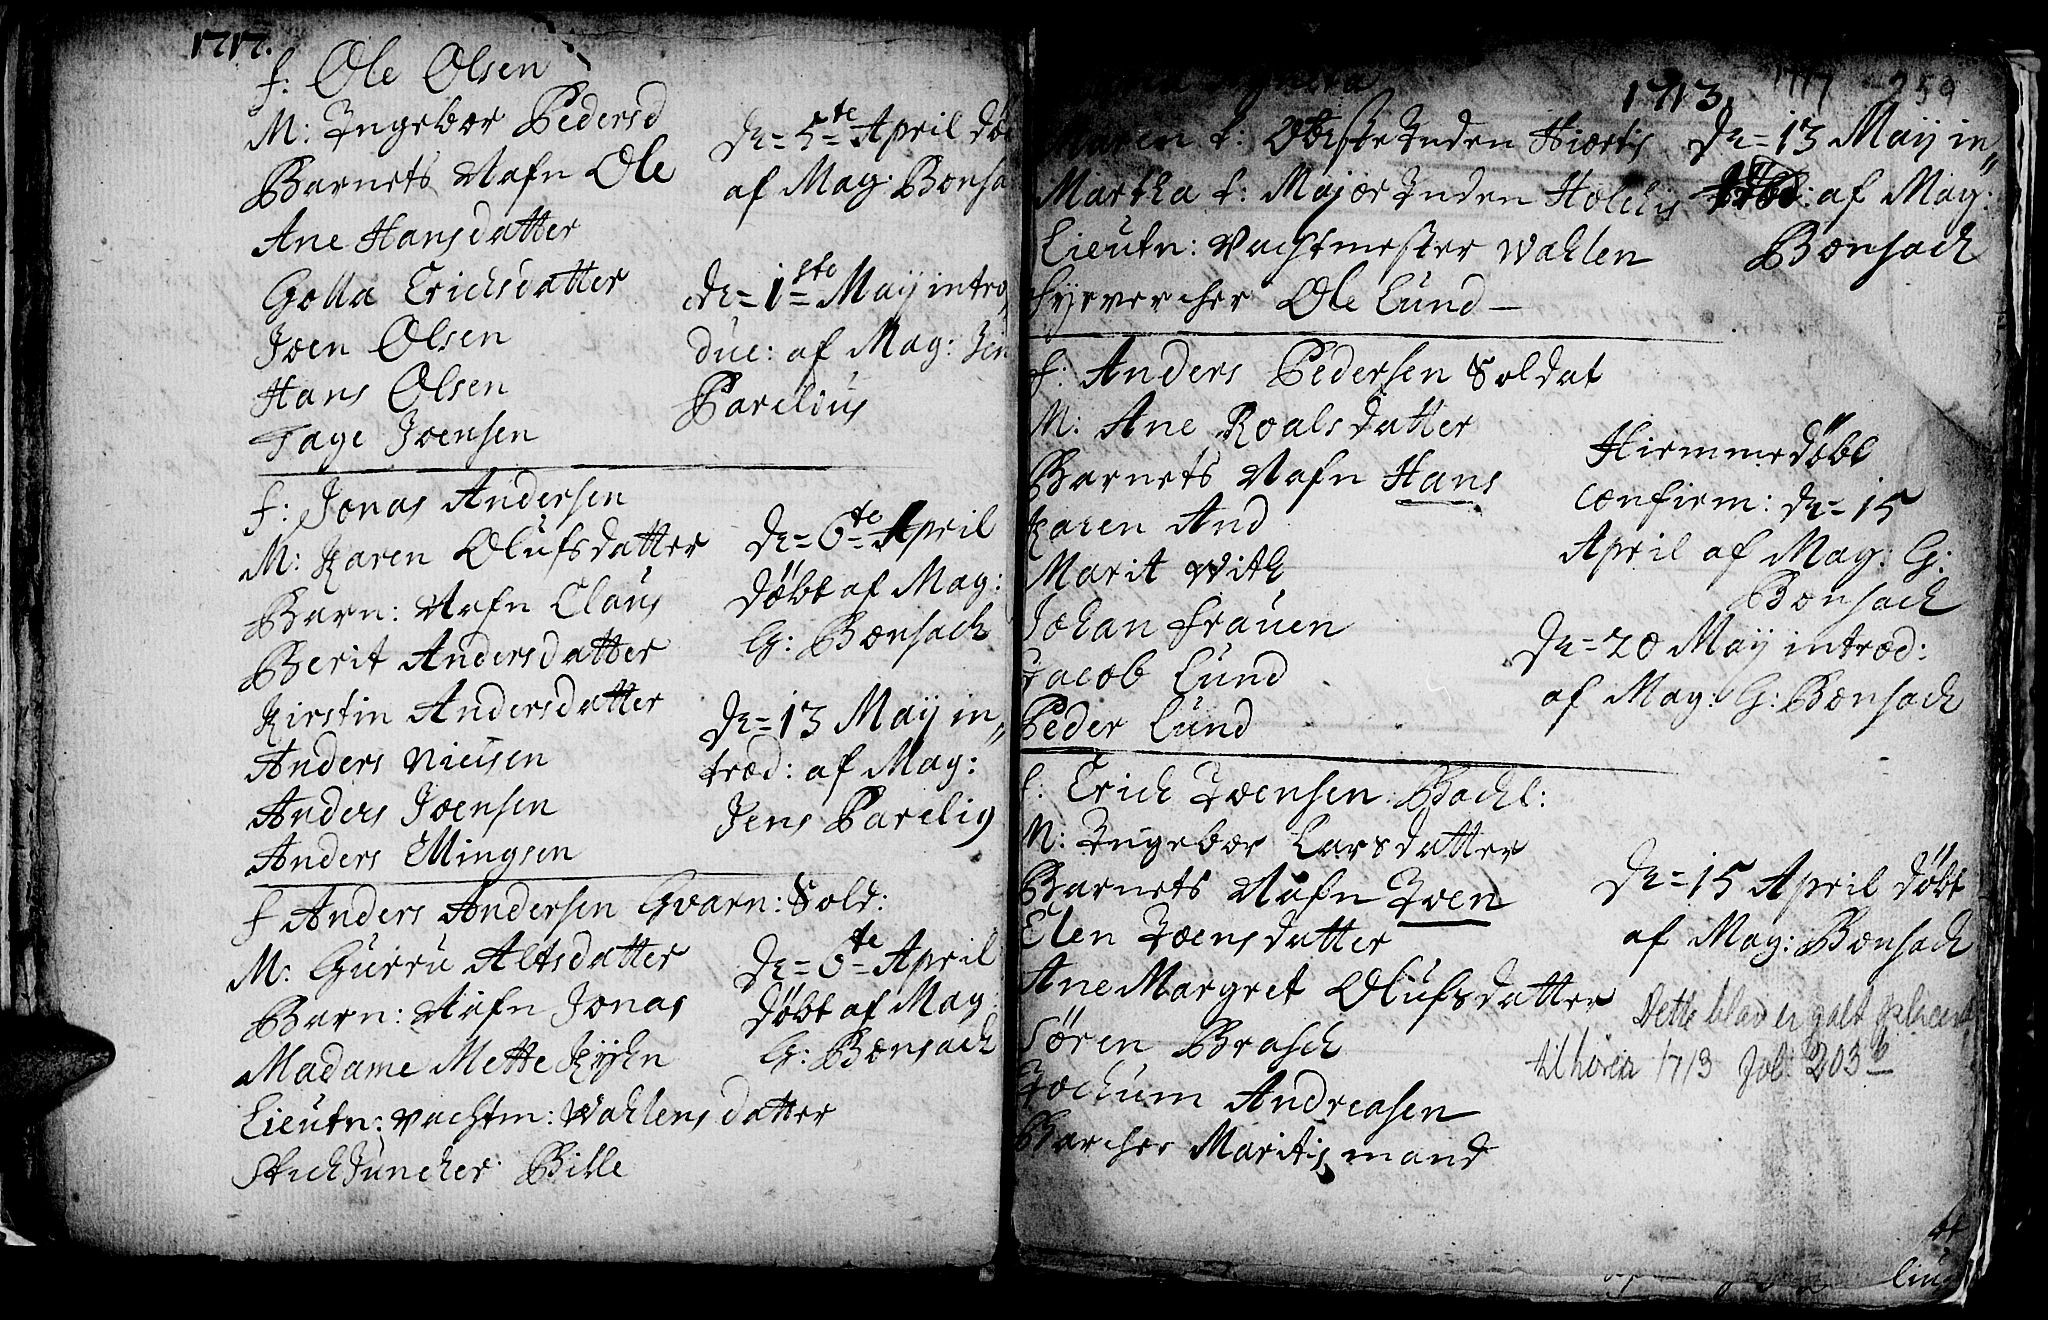 1717.
f: Ole Olsen
M: Ingebor Pedersd
Barnets Nafn Ole
Ane Hansdatter
Golla Erichsdatter
Joen Olsen
Hans Olsen
Tage Joensen
Dn= 5te April
af Mag: Bonsa
Dn= 1ste Maij intro
duc: af Mag: Jen
Parelius
f: Jonas Andersen
M: Karen Olufsdatter
Barn: Nafn Claus
Berit Andersdatter
Kirstin Andersdatter
Anders Nielsen
Anders Joensen
Anders Mingsen
Dn= 6te April
döbt af Mag:
G: Bonsach
Dn= 13 Maij in„
trod: af Mag:
Jens Parelig
f Anders Andersen Gvarn: Sold:
M: Gurru Altsdatter
Barn: Nafn Jonas
Madame Mette
Lieutn: Vachtm: Wahlens datter
Stich Juncher Bille
Dn= 6te April
döbt af Mag:
G: Bonsach
1713. 1717 259
Maren f: Inden Hiortis
Martha f: Major Inden Holchis
Lieutn: Vachtmester Wahlen
fyrvercher Ole Lund —
Dn= 13 Maij in„
trod: af Mag:
Bonsach
f: Anders Pedersen Soldat
M: Ane Roalsdatter
Barnets Nafn Hans
Karen And
Marit With
Johan frauen
Jacob Lund
Peder Lund
Hiemmedöbt
confirm: Dn= 15
April af Mag: G:
Bonsach
Dn= 20 Maij introd:
af Mag: G: Bonsach
f: Erich Joensen Bachl:
M: Ingebor Larsdatter
Barnets Nafn Joen
Elen Joensdatter
Ane Margret Olufsdatter
Sören Brasch
Jochum Andreasen
Barcher Maritis mand
Dn= 15 April döbt
af Mag: Bonsach
Dette blad er galt
tilhører 1713 fol 203b